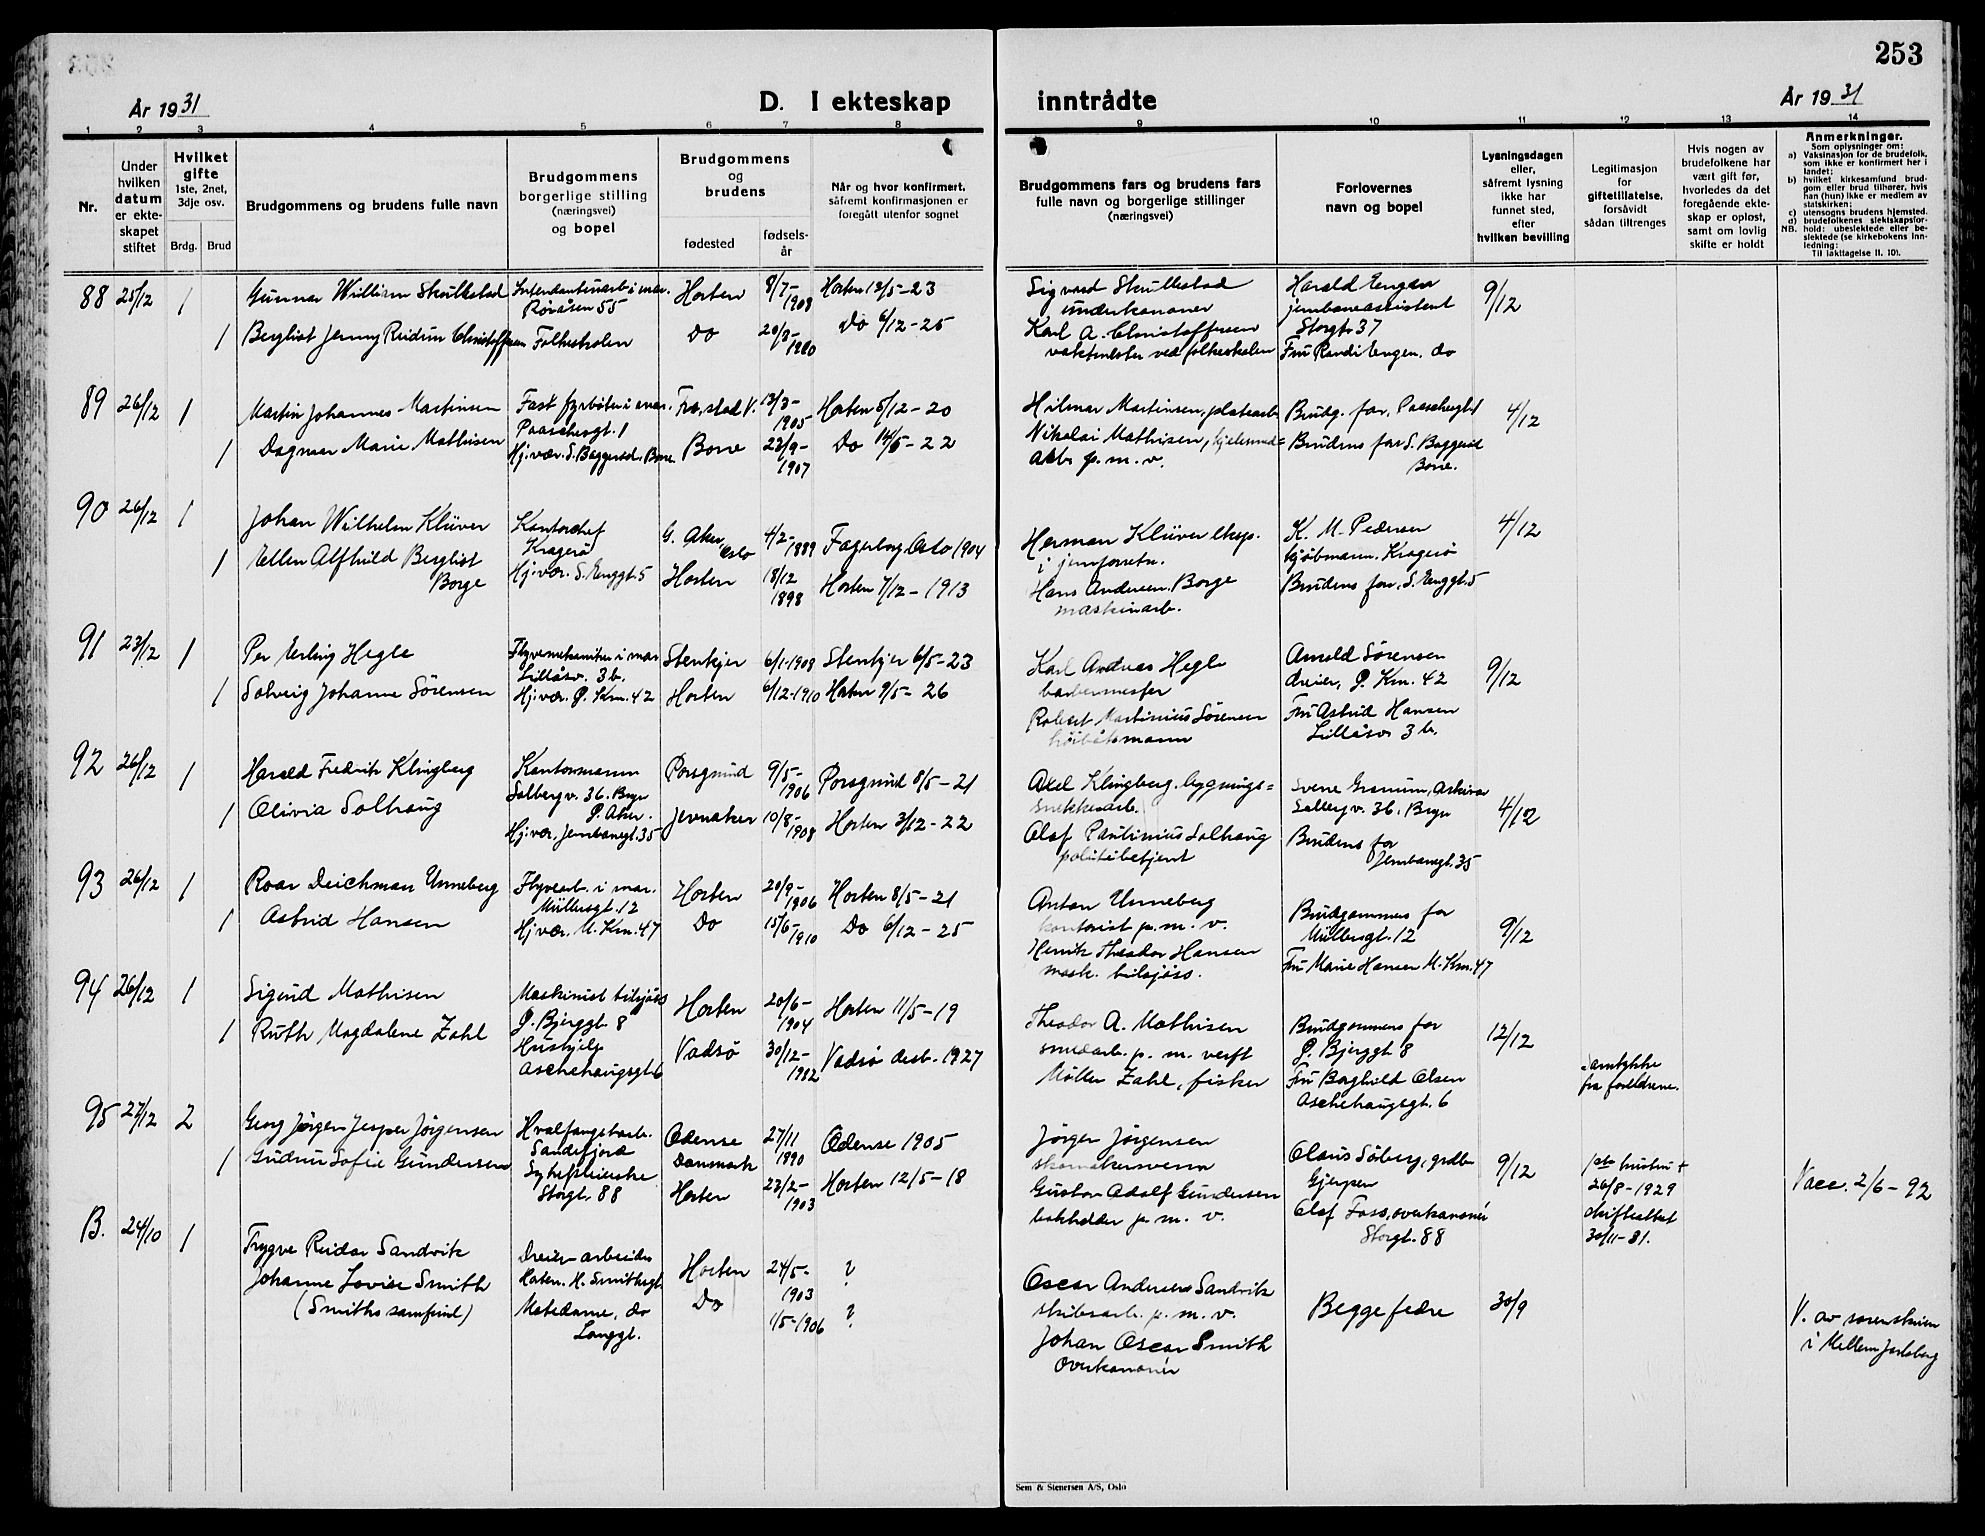 253
År 1931
D. I ekteskap
inntrådte
År 1931
1 2 3 4 5 6 7 8 9 10 11 12 13 14
Nr.
Under
hvilken
datum
er ekte-
skapet
stiftet
Hvilket
gifte
1ste, 2net,
3dje osv.
Brdg. Brud
Brudgommens og brudens fulle navn
Brudgommens
borgerlige stilling
(næringsvei)
og bopel
Brudgommens
og
brudens
fødested
fødsels-
år
Når og hvor konfirmert,
såfremt konfirmasjonen er
foregått utenfor sognet
Brudgommens fars og brudens fars
fulle navn og borgerlige stillinger
(næringsvei)
Forlovernes
navn og bopel
Lysningsdagen
eller,
såfremt lysning
ikke har
funnet sted,
efter
hvilken bevilling
Legitimasjon
for
giftetillatelse,
forsåvidt
sådan tiltrenges
Hvis nogen av
brudefolkene har
vært gift før,
hvorledes da det
foregående ekte-
skap er opløst,
samt om lovlig
skifte er holdt
Anmerkninger.
Som oplysninger om:
a) Vaksinasjon for de brudefolk,
som ikke er konfirmert her i
landet;
b) hvilket kirkesamfund brud-
gom eller brud tilhører, hvis
han (hun) ikke er medlem av
statskirken;
c) utensogns brudens hjemsted.
d) brudefolkenes slektskapsfor-
NB. hold: ubeslektede eller be-
slektede (se kirkebokens Inn-
ledning:
Til iakttagelse II. 10).
88 25/12 1
Gunnar William Skullestad
Røråsen 55
Horten
8/7-
1908
Horten 13/5-23
Sigvard Skullestad
underkanoner
Harald Engen
jernbaneassistent
Storgt. 37
9/12
1
Bergliot Jenny Reidun Christoffersen
Folkeskolen
Do
Do 6/12-25
Karl A. Christoffersen
vaktmester ved folkeskolen
Fru Randi Engen. do
89 26/12 1
Martin Johannes Martinsen
Fast fyrbøter i mar.
Paaschesgt. 1
13/3-
1905
Horten 5/12-20
Hilmar Martinsen, platearb.
Brudg. far, Paaschesgt 1
4/12
1
Dagmar Marie Mathisen
Hj.vær. S. Baggerød. Borre.
Borre
23/9-
1907
Do 14/5-22
Nikolai Mathisen, kjelesmed=
arb. p. m. v.
Brudens far S. Baggerød
Borre.
90 26/12 1
Johan Wilhelm Klüver
Kontorchef
Kragerø
G. Aker
Oslo
4/2-
1889
Fagerborg Oslo 1904
Herman Klüver eksp.
i jernforretn.
K. M. Pedersen
kjøbmann. Kragerø
4/12
1
Ellen Alfhild Bergliot
Borge
Hj.vær. S. Enggt. 5
Horten
18/12
1898
Horten 7/12-1913
Hans Andersen Borge
maskinarb.
Brudens far, S. Enggt. 5
91 23/12 1
Per Erling Hegle
Flyvemekaniker i mar
Lillåsv. 3 b.
Stenkjer
6/1-1908
Stenkjer 6/5-23
Karl Andreas Hegle
barbermester
Arnold Sørensen
dreier, P. Km. 42
9/12
1
Solveig Johanne Sørensen
Hj.vær. P. Km. 42
Horten
6/12-1910
Horten 9/5-26
Robert Martinius Sørensen
høibåtsmann
Fru Astrid Hansen
Lillåsv 3 b.
92 26/12 1
Harald Fredrik Klingberg
Kontormann
Solbergv. 36. Bryn
Ø. Aker.
Porsgrund
9/5-
1906
Porsgrund 8/5-21
Axel Klingberg. bygnings=
snekkerarb.
Solbergv. 36. Bryn
4/12
1
Olivia Solhaug
Hj.vær. Jernbanegt. 35
Jevnaker
10/8-
1908
Horten 3/12-22
Olaf Paulinius Solhaug
politibetjent
Brudens far
Jernbanegt. 35
93 26/12 1
Roar Deichman Unneberg
Flyvearb. i mar.
Müllersgt. 12
Horten
20/9-
1906
Horten 8/5-21
Anton Unneberg
kontorist p. m. v.
Brudgommens far
Müllersgt. 12
9/12
1
Astrid Hansen
Hj.vær. M. Km. 47
Do
15/6-
1910
Do 6/12-25
Henrik Theodor Hansen
mask. tilsjøss.
Fru Marie Hansen M. Km. 47
94 26/12 1
Sigurd Mathisen
Maskinist tilsjøss
P. Bjerggt. 8
Horten
20/6-
1904
Horten 11/5-19
Theodor A. Mathisen
smedarb. p. m. verft
Brudgommens far
P. Bjerggt. 8
12/12
1
Ruth Magdalene Zahl
Hushjelp
Aschehaugsgt 6
Vadsø
30/12-
1912
Vadsø desb. 1927
Møller Zahl, fisker
Fru Borghild Olsen
Aschehaugsgt. 6
Samtykke
fra foreldrene.
95 27/12 2
Georg Jørgen Jesper Jørgensen
Hvalfangstarb.
Sandefjord
Odense
Danmark
27/11
1890
Odense 1905
Jørgen Jørgensen
skomakersvenn
Gjerpen
9/12
hustru +
26/8-1929
Vacc. 2/6-92
1
Gudrun Sofie Gundersen
Sykepleierske
Storgt. 88
Horten
23/2-
1903
Horten 12/5-18
Gustav Adolf Gundersen
bokholder p. m. v.
Olaf Foss, overkanonér
Storgt. 88
skifteattest
30/11-31.
B. 24/10 1
Trygve Reidar Sandvik
Dreier-arbeider
Horten. H. Smithsgt.
Horten
24/5-
1903
?
Oscar Andersen Sandvik
skibsarb. p. m. v.
Begge fedre
30/9
V. av sorenskriver
i Mellem Jarlsberg
Johanne Lovise Smith
(Smiths samfund)
Langgt.
Do
1/5-1906
?
Johan Oscar Smith
overkanonér
Sem & Stenersen A/S, Oslo